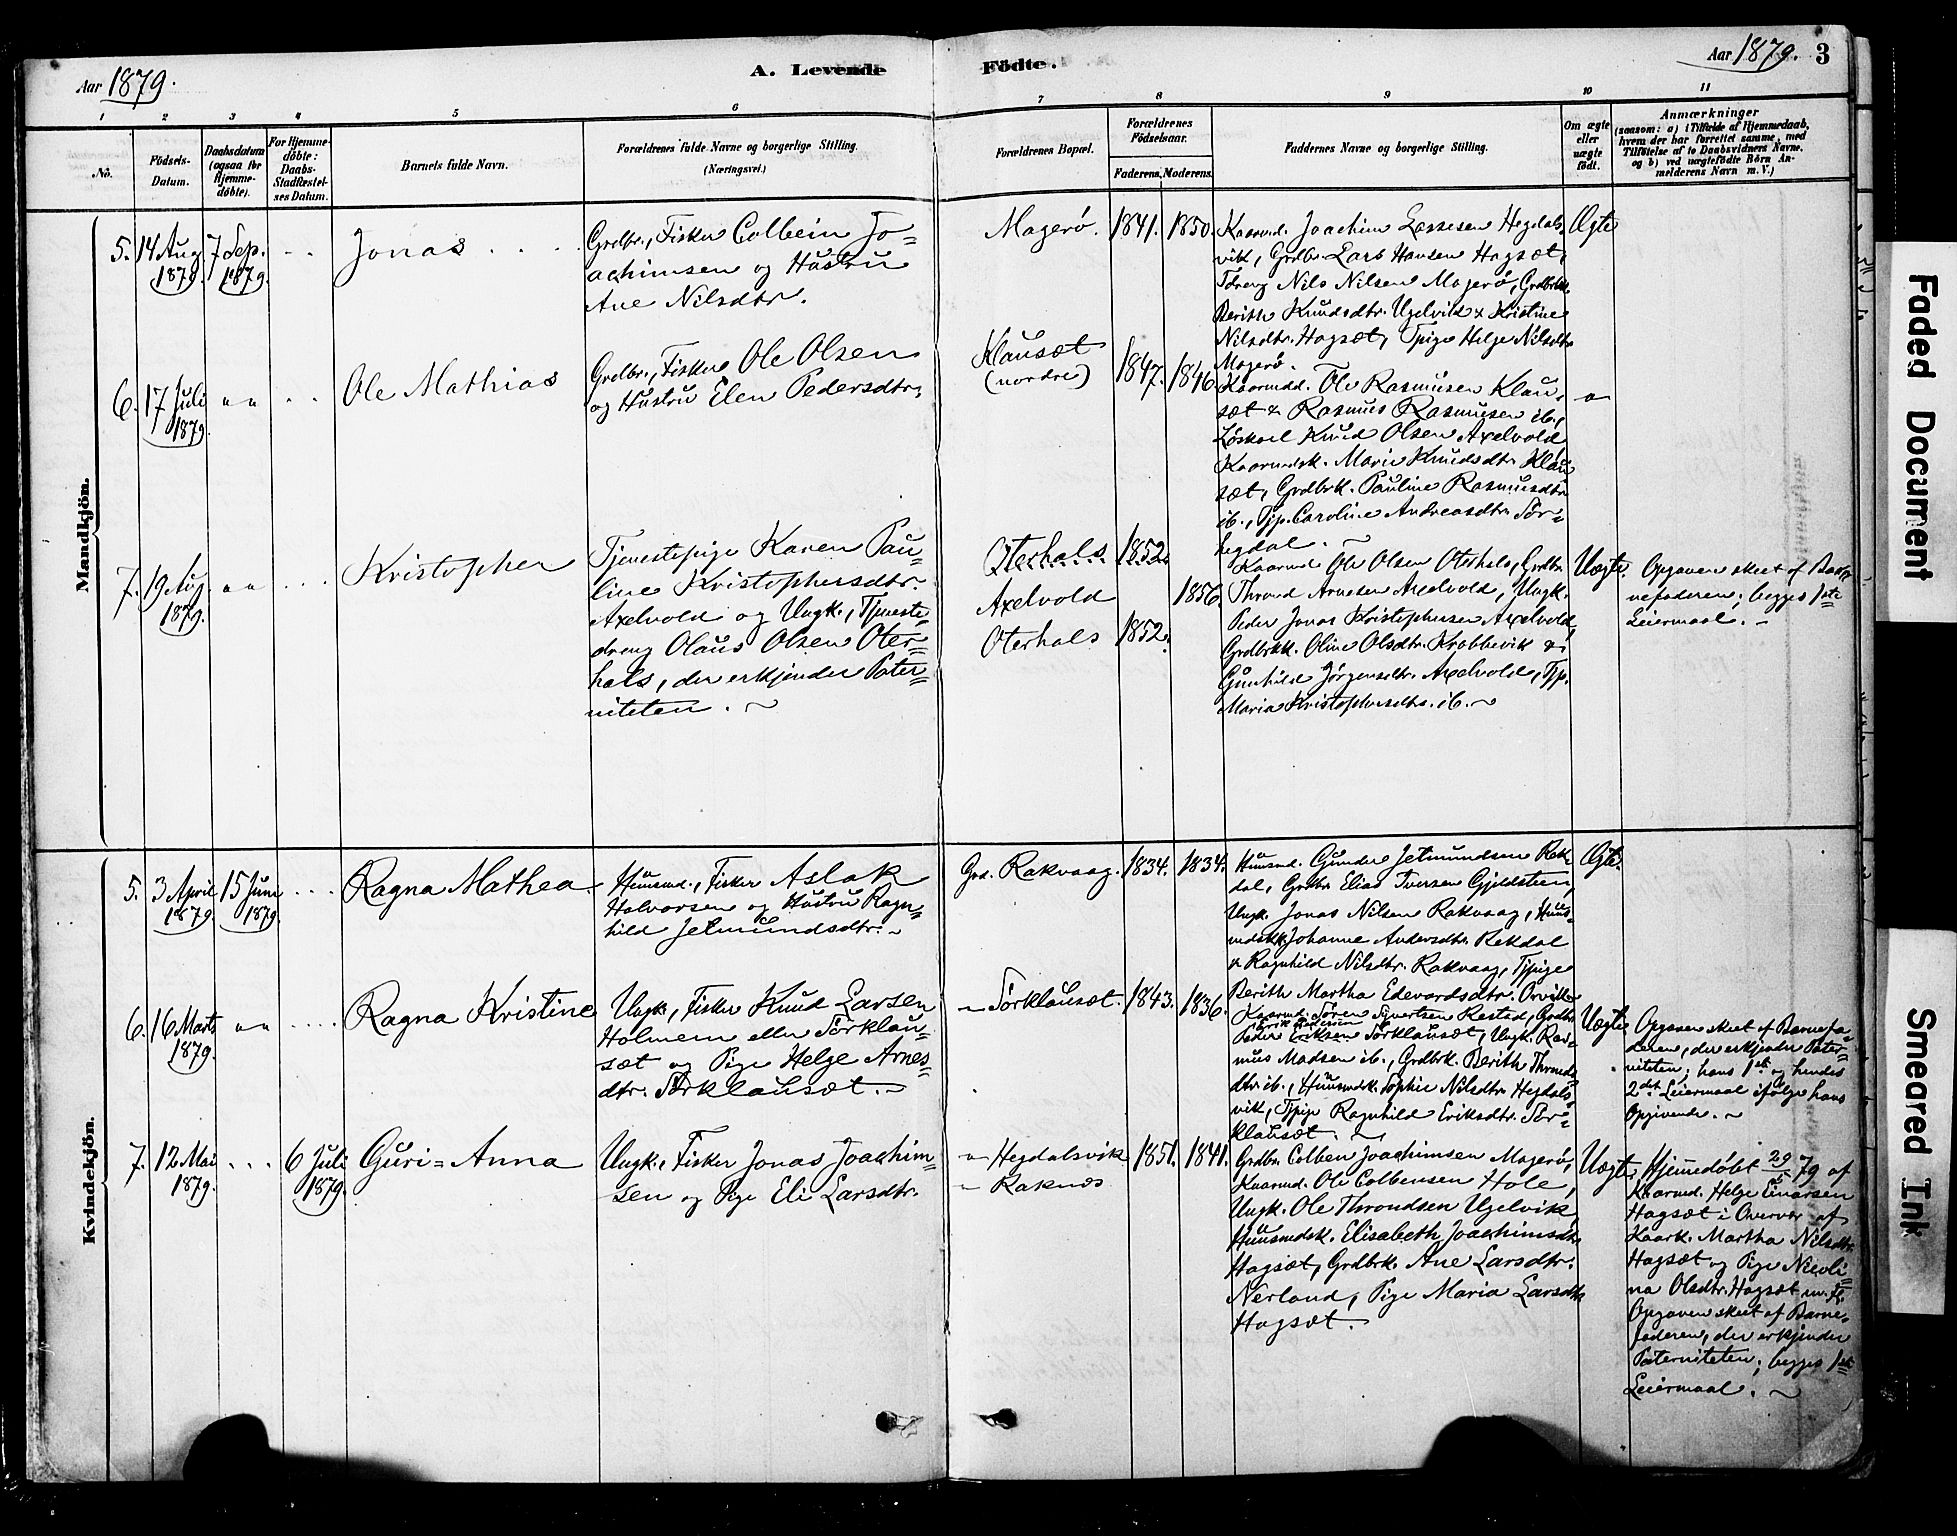 Aar 1879.
A. Levende Födte.
Aar 1879. 3
1 2 3 4 5 6 7 8 9 10 11
No.
Födsels-
Datum.
Daabsdatum
(ogsaa for
Hjemme-
döbte).
For Hjemme-
döbte:
Daabs-
Stadfæstel-
ses Datum.
Barnets fulde Navn.
Forældrenes fulde Navne og borgerlige Stilling.
(Næringsvei.)
Forældrenes Bopæl.
Forældrenes
Födselsaar.
Faderens. Moderens.
Faddernes Navne og borgerlige Stilling.
Om ægte
eller
uægte
födt.
Anmærkninger
(saasom: a) i Tilfælde af Hjemmedaab,
hvem der har forrettet samme, med
Tilföielse af to Daabsvidners Navne,
og b) ved uægtefödte Börn An-
melderens Navn m. V.)
Mandkjön.
5.
14 Aug
1879.
7 Sep.
1879.
Jonas
Grdbr., Fisker Colbein Jo=
achimsen og Hustru
Ane Nilsdtr.
Magerö.
1841.
1850.
Kaarmd. Joachim Lassesen Hegdals-
vik, Grdbr. Lars Hansen Hagsæt,
Tdreng Nils Nilsen Magerö, Grdbrkk.
Berith Knudsdtr. Ugelvik & Kristine
Nilsdtr. Hagsæt, Tpige Helge Nilsdtr
Magerö.
Ægte
6.
17 Juli
1879.
" "
Ole Mathias
Grdbr., Fisker Ole Olsen
og Hustru Elen Pedersdtr.
Klausæt
(nordre)
1847.
1846.
Kaarmdd. Ole Rasmusen Klau-
sæt & Rasmus Rasmusen ib.,
Löskarl Knud Olsen Axelvold
Kaarmdsk. Marie Knudsdtr. Klau
sæt, Grdbrk. Pauline Rasmusdtr
ib., Tjp. Caroline Andreasdtr. Sör=
hegdal.
"
7.
19 Aug
1879.
" "
Kristopher
Tjenestepige Karen Pau=
line Kristophersdtr.
Axelvold og Ungk., Tjeneste=
dreng Olaus Olsen Oter=
hals, der erkjender Pater=
niteten.
Oterhals
Axelvold
Oterhals
1852.
1856.
1852.
Kaarmd Ole Olsen Oterhals, Grdbr.
Thrond Arnesen Axelvold, Ungk.
Peder Jonas Kristophersen Axelvold,
Grdbrkk. Oline Olsdtr. Krabbevik &
Gunhild Jörgensdtr. Axelvold, Tjp.
Maria Kristophersdtr. ib.
Uægte.
Opgaven skeet af Bar=
nefaderen; begges 1ste
Leiermaal.
Kvindekjön.
5.
3 April
1879.
15 Juni
1879.
Ragna Mathea
Huusmd., Fisker Aslak
Halvorsen og Hustru Ragn=
hild Jetmundsdtr.
Grd. Rakvaag.
1834.
1834.
Huusmd. Gunder Jetmundsen Rek-
dal, Grdbr. Elias Iversen Gjeldsteen
Ungk. Jonas Nilsen Rakvaag, Huus=
mdskk. Johanne Andersdtr. Rekdal
& Ragnhild Nilsdtr. Rakvaag, Tjpige
Berith Martha Edevardsdtr. Orvik.
Ægte.
6.
16 Marts
1879.
" "
Ragna Kristine
Ungk., Fisker Knud Larsen
Holmem eller Sörklau=
sæt og Pige Helge Arnes=
dtr. Sörklausæt.
" Sörklausæt.
1843.
1836.
Kaarmd. Sören Syvertsen Restad, Grdbr
Peder Eriksen Sörklausæt, Ungk. Ras=
mus Madsen ib., Grdbrk. Berith Thronds
dtr ib., Huusmdsk. Sophie Nilsdtr. Hegdals
vik, Tjpige Ragnhild Eriksdtr. Sör=
klausæt.
Uægte
Opgaven skeet af Barnefa
deren, der erkjender Pater=
niteten; hans 1ste og hendes
2det Leiermaal ifölge hans
Opgivende.
7.
12 Mai
1879.
6 Juli
1879.
Guri=Anna
Ungk., Fisker Jonas Joachim=
sen og Pige Eli Larsdtr.
" Hegdalsvik
" Raknæs
1851.
1841.
Grdbr. Colben Joachimsen Magerö,
Kaarmd. Ole Colbensen Hole,
Ungk. Ole Throndsen Ugelvik
Huusmdsk. Elisabeth Joachimsdtr
Hagsæt, Grdbrk. Ane Larsdtr.
Nerland, Pige Maria Larsdtr
Hagsæt.
Uægte
Hjemmedöbt 29/5 79 af
Kaarmd. Helge Einarsen
Hagsæt i Overvær af
Kaark. Martha Nilsdtr.
Hagsæt og Pige Nicoli=
na Olsdtr. Hagsæt
Opgaven skeet af Barne=
faderen, der erkjender
Paterniteten; begges 1ste
Leiermaal.
Faded Document
Smeared Ink